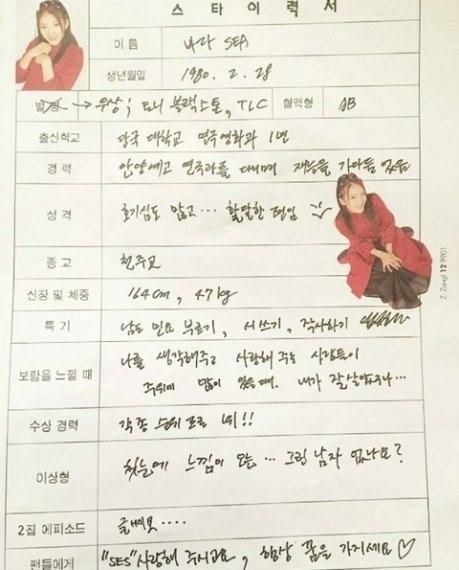 스 타 이 력 서
이 름 바다 SEA
생년월일 1980. 2. 28
→ 우상; 모니 블랙스톤, TLC 혈액형 AB
출신학교 단국 대학교 연극영화과 1년
경 력 안양예고 연극과를 다니며 재능을 가다듬
성 격 호기심도 많고... 활발한 편임
종 교 천주교
신장 및 체중 164cm, 47kg
특 기 남도 민요 부르기, 시쓰기, 작사하기
보람을 느낄 때 나를 생각해주고 사랑해 주는 사람들이
주위에 많이 있을 때. 내가 잘 살았구나...
수상 경력 각종 순위 프로 1위!!
이상형 첫눈에 느낌이 오는... 그런 남자 없나요?
2집 에피소드 글쎄요....
팬들에게 "SES" 사랑해 주시고요, 항상 꿈을 가지세요♡
Z-Zang! 12 9901